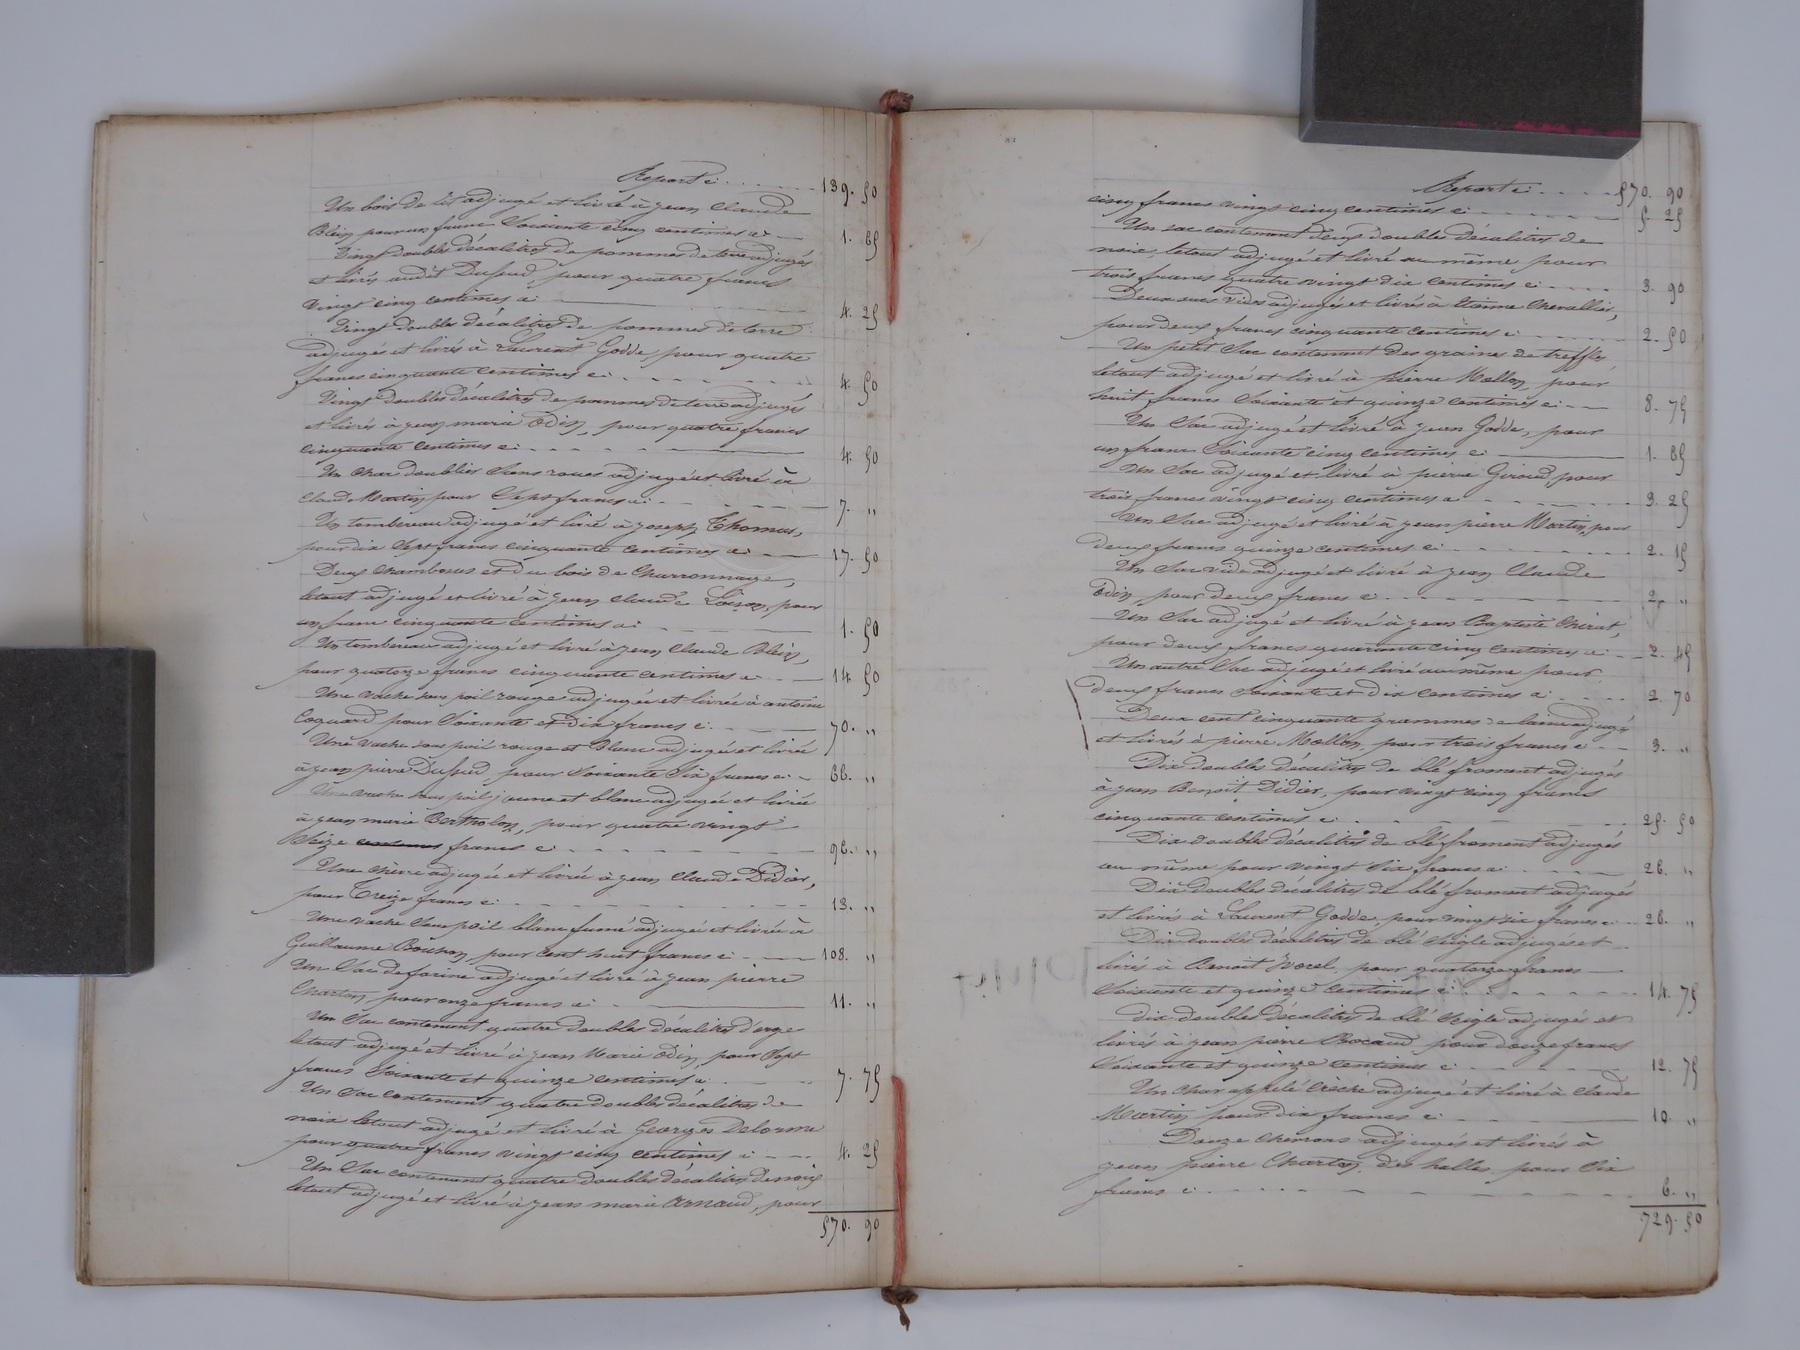 Report ci 139. 50
Un bois de lit adjugé et livré à jean Claude
Blein pour un franc Soixante cinq centimes ci 1. 65
Vingt doubles décalitres de pommes de terre adjugés
et livrés audit Dufeud, pour quatre francs
vingt cinq centimes ci 4. 25
Vingt doubles décalitres de pommes de terre
adjugés et livrés à Laurent Godde, pour quatre
francs cinquante centimes ci 4. 50
Vingt doubles décalitres de pommes de terre adjugés
et livrés à jean marie Odin, pour quatre francs
cinquante centimes ci 4. 50
Un char doublier Sans roues adjugé et livré à
Claude Martin pour Sept francs ci 7. "
Un tombereau adjugé et livré à joseph Thomas,
pour dix Sept francs cinquante centimes ci 17. 50
Deux et du bois de Charronnage,
letout adjugé et livré à jean claude Loison, pour
un franc cinquante centimes ci 1. 50
Un tombereau adjugé et livré à jean Claude Blein,
pour quatorze francs cinquante centimes ci 14 50
Une vache sous poil rouge adjugée et livrée à antoine
Coquard pour Soixante et Dix francs ci 70. "
Une vache sous poil rouge et Blanc adjugée et livrée
à jean pierre Dufeud, pour Soixante Six francs ci 66. "
Une vache sous poil jaune et blanc adjugée et livrée
à jean marie Bertholon, pour quatre vingt
Seize centimes francs ci 96. "
Une chèvre adjugée et livrée à jean Claude Didier,
pour Treize francs ci 13. "
Une vache Sous poil blanc fumé adjugée et livrée à
Guillaume pour cent huit francs ci 108. "
Un Sac de farine adjugé et livré à jean pierre
Charton pour onze francs ci 11. "
Un Sac contenant quatre doubles décalitres d'orge
letout adjugé et livré à jean Marie Odin, pour Sept
francs Soixante et quinze centimes ci 7. 75
Un Sac contenant quatre doubles décalitres de
noix letout adjugé et livré à Georges Delorme
pour quatre francs vingt cinq centimes ci 4. 25
Un Sac contenant quatre doubles décalitres de noix
letout adjugé et livré à jean marie Arnaud, pour
570. 90
Report ci 570. 90
cinq francs vingt cinq centimes ci 5. 25
Un sac contenant deux doubles Décalitres de
noix, letout adjugé et livré au même pour
trois francs quatre vingt dix centimes ci 3. 90
Deux sacs vides adjugés et livrés à Etienne Chevallier,
pour deux francs cinquante centimes ci 2. 50
Un petit Sac contenant des graines de treffles
letout adjugé et livré à pierre Mollon, pour
huit francs Soixante et quinze centimes ci 8. 75
Un Sac adjugé et livré à jean Godde, pour
un franc Soixante cinq centimes ci 1. 65
Un Sac adjugé et livré à pierre Giroud, pour
trois francs vingt cinq centimes ci 3. 25
Un Sac adjugé et livré à jean pierre Martin, pour
deux francs quinze centimes ci 2. 15
Un Sac vide adjugé et livré à jean Claude
Odin, pour deux francs ci 2. "
Un Sac adjugé et livré à jean Baptiste Chirat,
pour deux francs quarante cinq centimes ci 2. 45
Un autre Sac adjugé et livré au même pour
deux francs soixante et dix centimes ci 2. 70
Deux cent cinquante grammes de laine adjugés
et livrés à pierre Mollon, pour trois francs ci 3. "
Dix doubles décalitres de blé froment adjugés
à jean Benoit Didier, pour vingt cinq francs
cinquante centimes ci 25. 50
Dix doubles décalitres de blé froment adjugés
au même pour vingt Six francs ci 26. "
Dix doubles décalitres de blé froment adjugés
et livrés à Laurent Godde, pour vingt six francs ci 26. "
Dix doubles décalitres de blé Seigle adjugés et
livrés à Benoit pour quatorze francs
Soixante et quinze centimes ci 14. 75
dix doubles décalitres de blé Seigle adjugés et
livrés à jean pierre pour douze francs
Soixante et quinze centimes ci 12. 75
Un char appelé adjugé et livré à Claude
Martin pour dix francs ci 10. "
Douze chevrons adjugés et livrés à
jean pierre Charton, des halles, pour Six
francs ci 6. "
729. 50